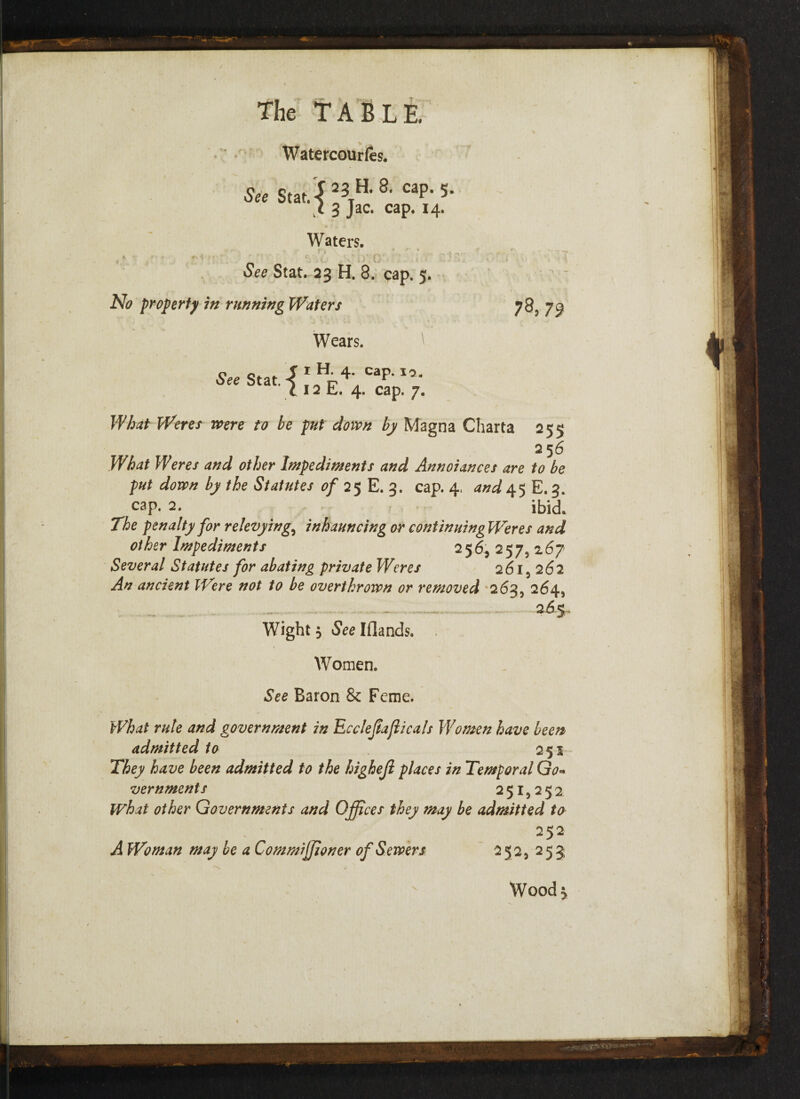 The TABLE.
Watercourſes.
See Stat. { 23 H. 8. cap. 5.
3 Jac. cap. 14.
Waters.
See Stat. 23 H. 8. cap. 5.
No property in running Waters 78, 79
Wears.
See Stat. { 1 H. 4. cap. 12.
12 E. 4. cap. 7.
What Weres were to be put down by Magna Charta 255
256
What Weres and other Impediments and Annoiances are to be
put down by the Statutes of 25 E. 3. cap. 4. and 45 E. 3.
cap. 2. ibid.
The penalty for relevying, inhauncing or continuing Weres and
other Impediments 256, 257, 267
Several Statutes for abating private Weres 261, 262
An ancient Were not to be overthrown or removed 263, 264,
265.
Wight; See Iſlands.
Women.
See Baron & Feme.
What rule and government in Eccleſiaſticals Women have been
admitted to 251
They have been admitted to the higheſt places in Temporal Go-
vernments 251, 252
What other Governments and Offices they may be admitted to
252
A Woman may be a Commiſſioner of Sewers 252, 253
Wood;